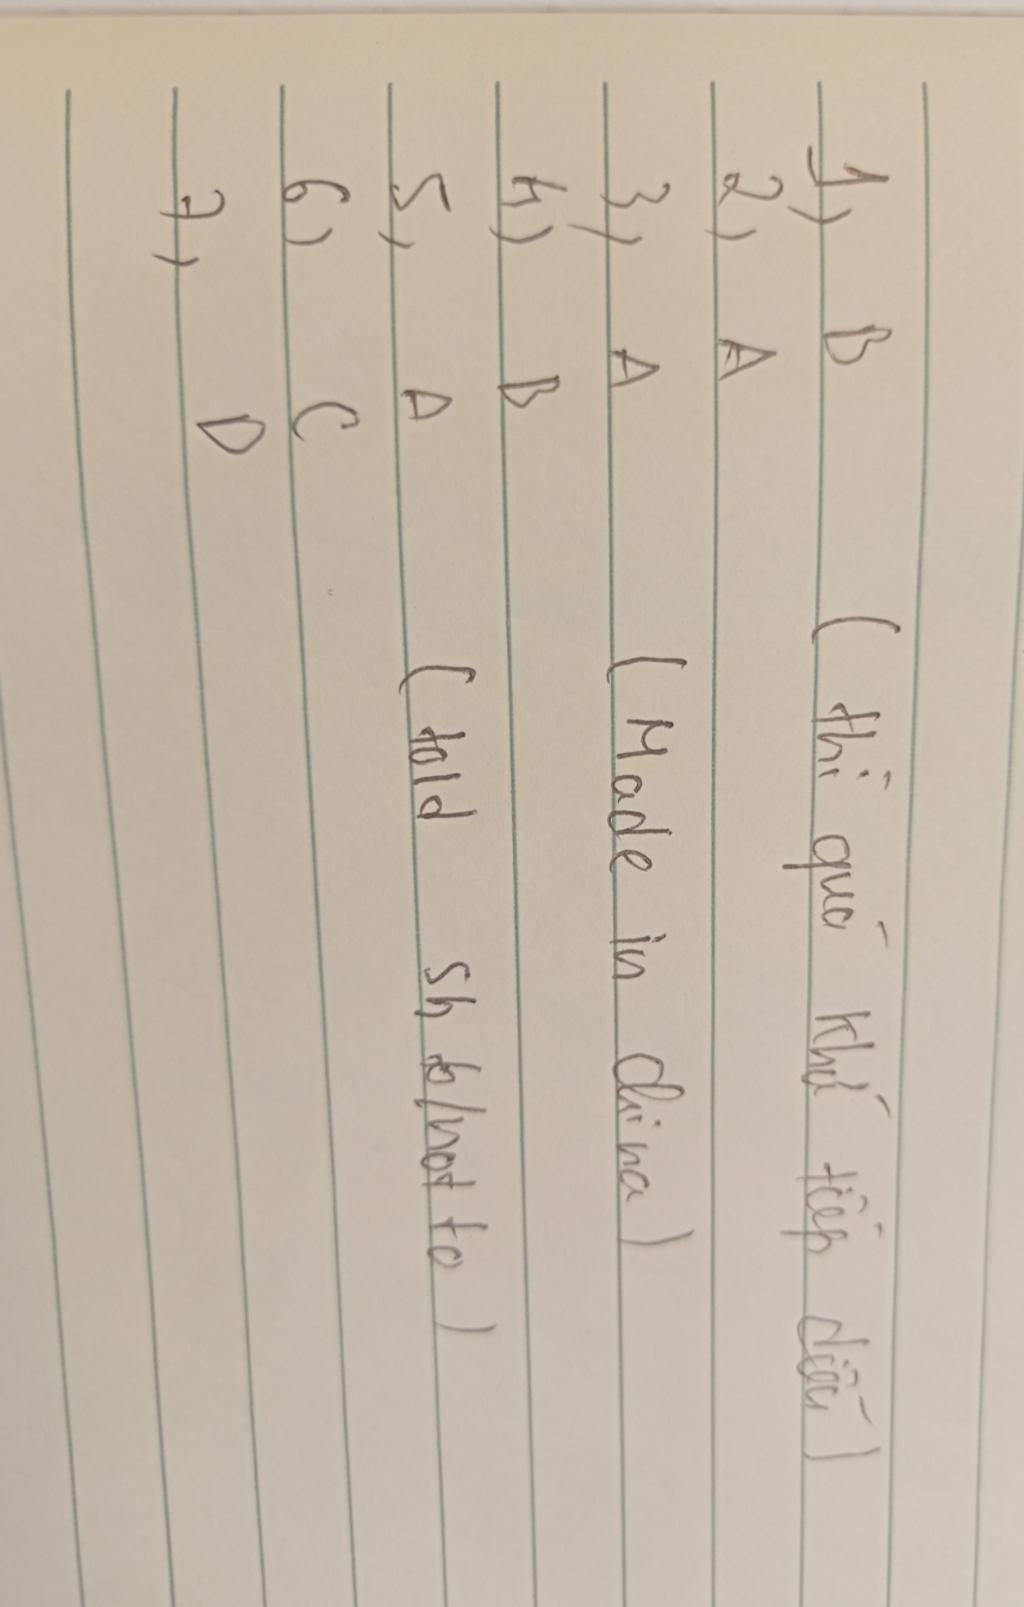 1) B ( thì quá khứ tiếp diễn)
2) A
3) A ( Made in china)
4) B
5) A ( told sb to/not to )
6) C
7) D